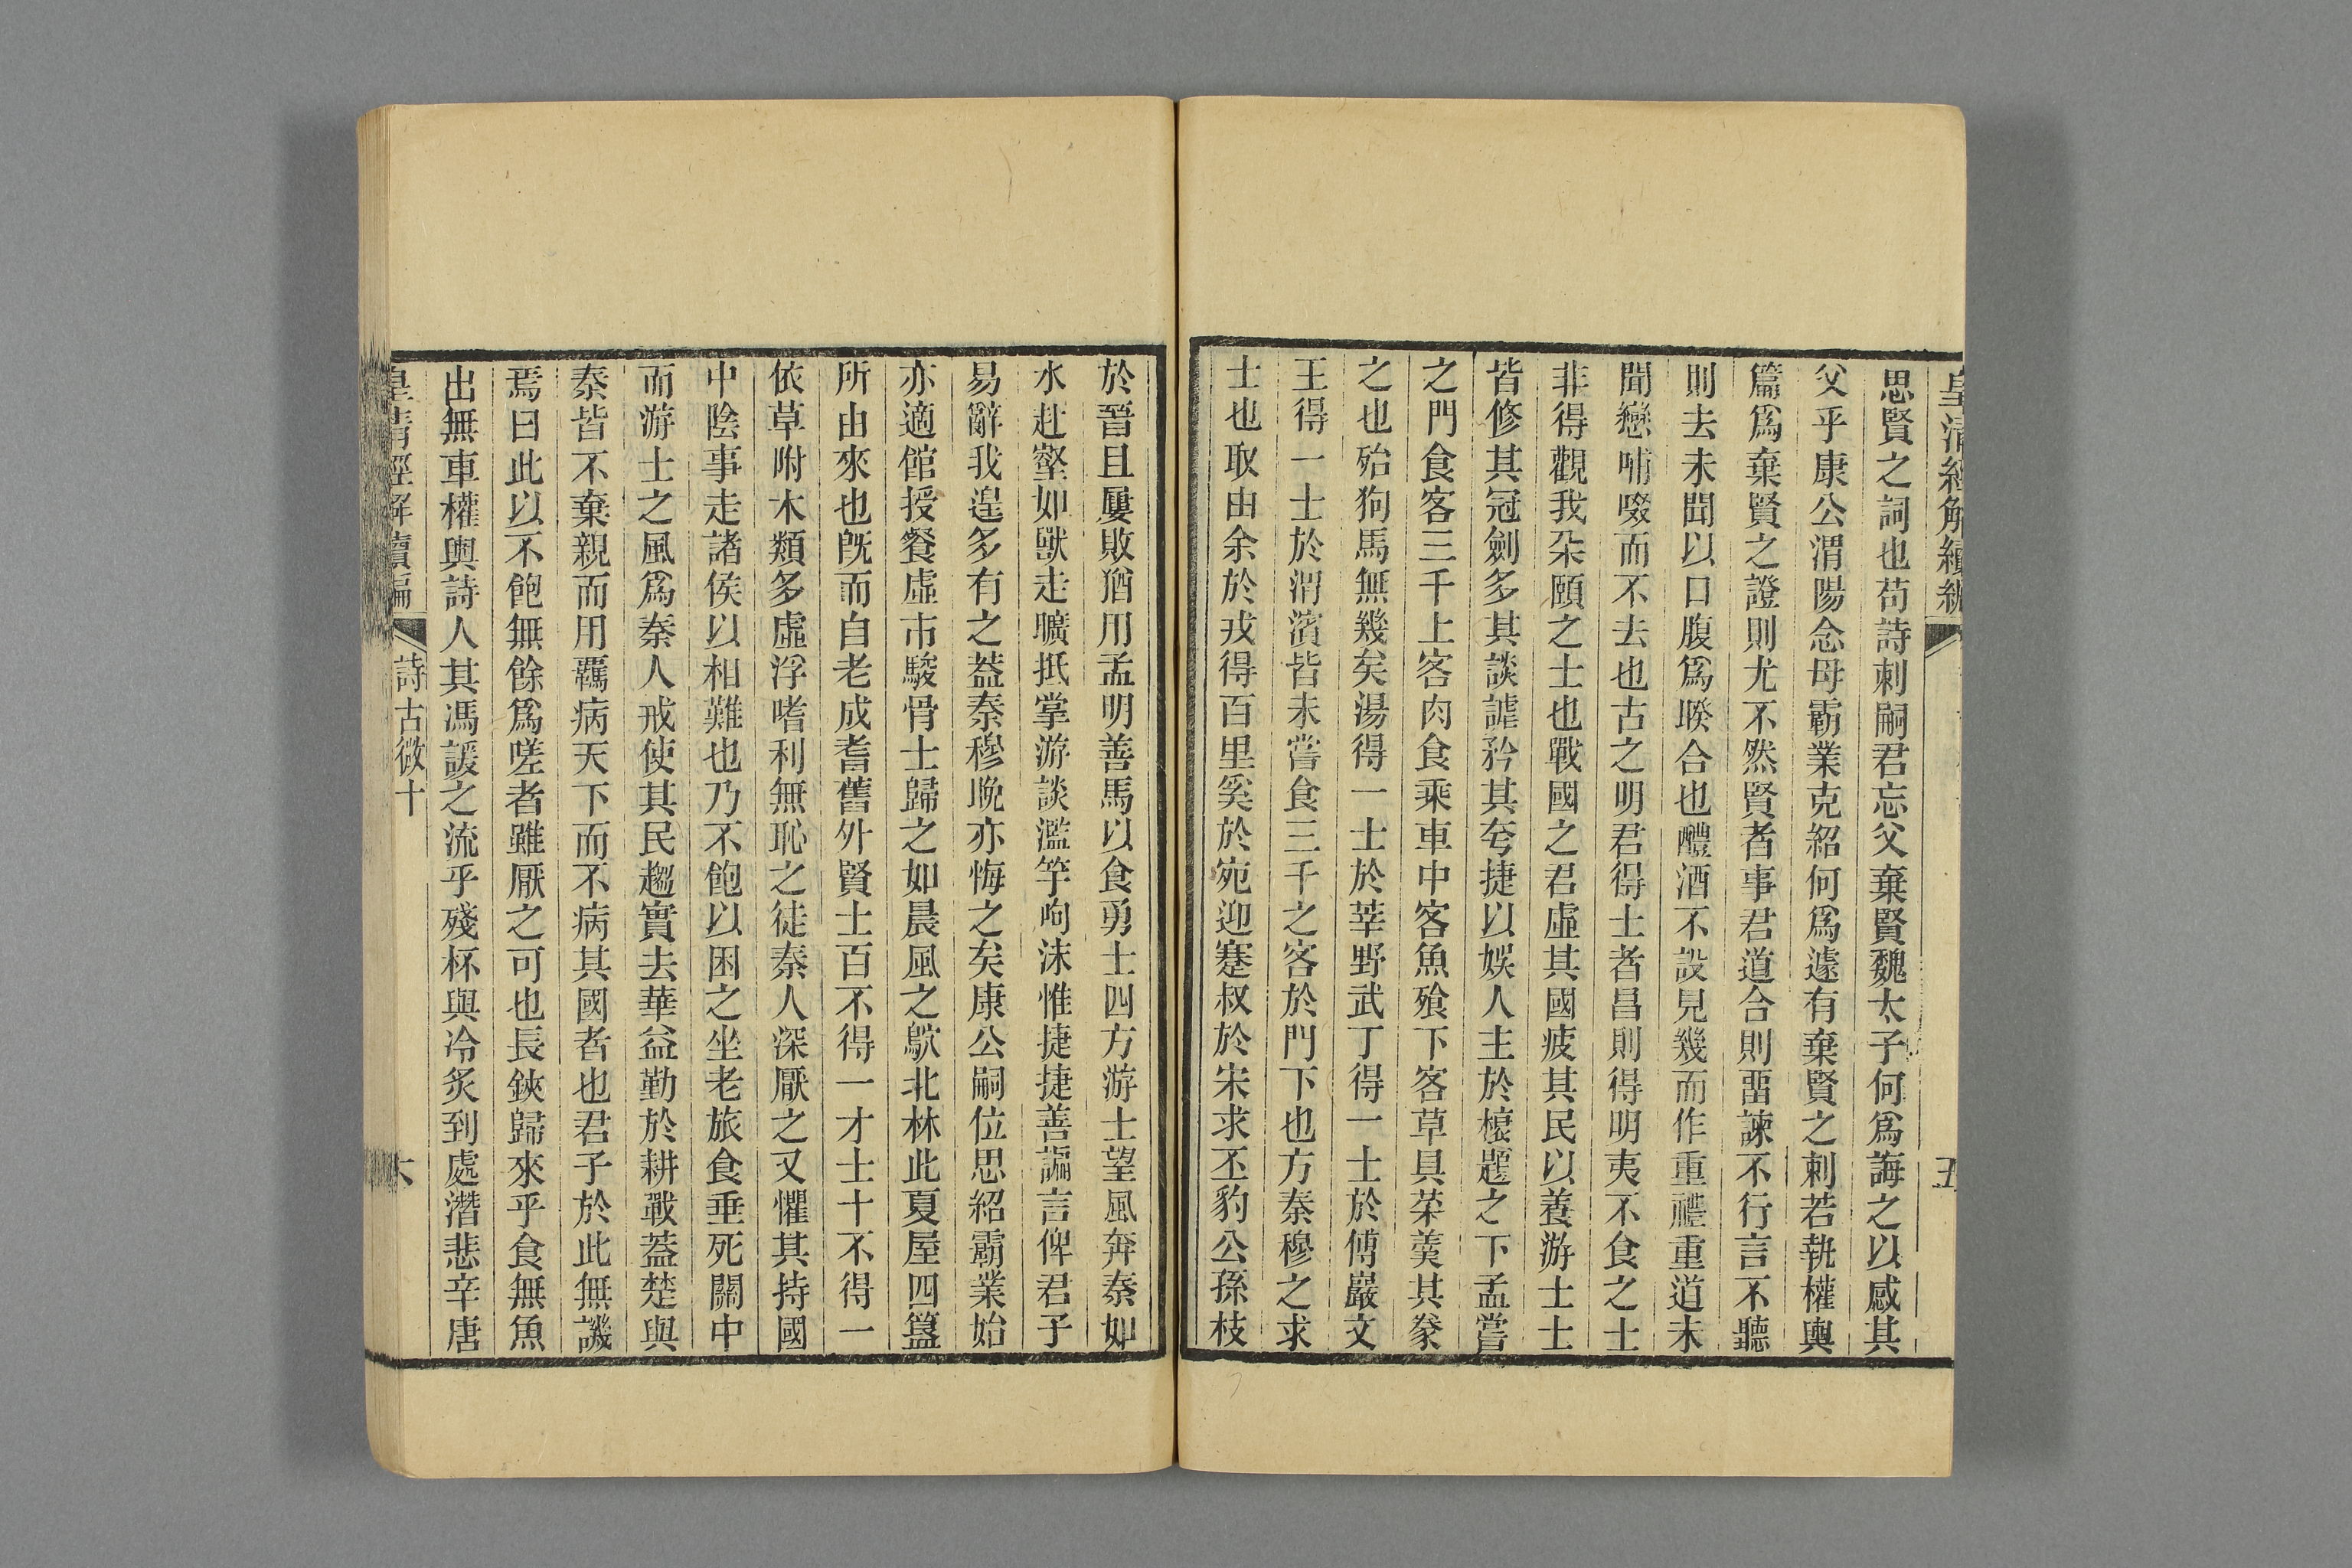 皇清經解續編
五
思賢之詞也苟詩刺嗣君忘父棄賢魏太子何爲誨之以感其
父乎康公渭陽念母霸業克紹何爲遽有棄賢之刺若執權輿
篇爲棄賢之證則尤不然賢者事君道合則畱諫不行言不聽
則去未聞以口腹爲睽合也醴酒不設見幾而作重禮重道未
聞戀哺啜而不去也古之明君得士者昌則得明夷不食之士
非得觀我朵頤之士也戰國之君虛其國疲其民以養游士士
皆修其冠劍多其談謔矜其夸捷以娛人主於榱題之下孟嘗
之門食客三千上客肉食乘車中客魚飱下客草具菜羹其豢
之也殆狗馬無幾矣湯得一士於莘野武丁得一士於傅巖文
王得一士於渭濱皆未嘗食三千之客於門下也方秦穆之求
士也取由余於戎得百里奚於宛迎蹇叔於宋求丕豹公孫枝
於晉且屢敗猶用孟明善馬以食勇士四方游士望風奔秦如
水赴壑如獸走曠抵掌游談濫竽呴沫惟捷捷善諞言俾君子
易辭我遑多有之葢秦穆晚亦悔之矣康公嗣位思紹霸業始
亦適館授餐虛市駿骨士歸之如晨風之鴥北林此夏屋四簋
所由來也旣而自老成耆舊外賢士百不得一才士十不得一
依草附木類多虛浮嗜利無恥之徒秦人深厭之又懼其持國
中陰事走諸侯以相難也乃不飽以困之坐老旅食垂死關中
而游士之風爲秦人戒使其民趨實去華益勤於耕戰葢楚與
秦皆不棄親而用羈病天下而不病其國者也君子於此無譏
焉曰此以不飽無餘爲嗟者雖厭之可也長鋏歸來乎食無魚
出無車權輿詩人其馮諼之流乎殘杯與冷炙到處潛悲辛唐
皇清經解續編
詩古微十
六